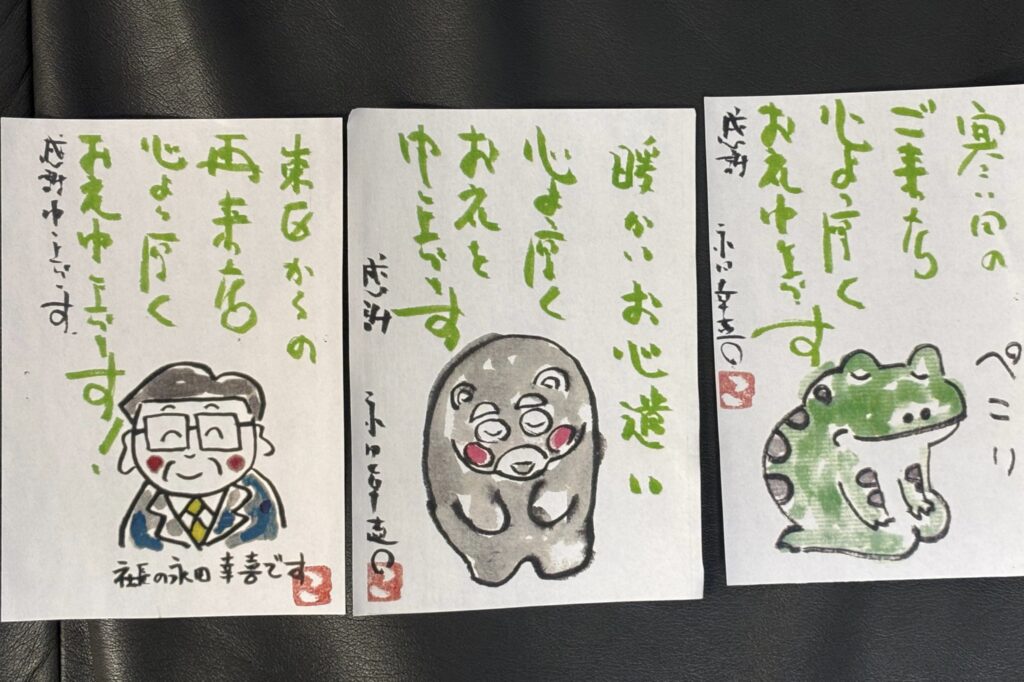 東区からの
再来店
心より厚く
お礼申し上げます!
感謝申し上げます
社長の永田幸喜です
暖かいお心遣い
心より厚く
お礼を
申し上げます
感謝
永田幸喜
寒い日の
ご来店
心より厚く
お礼申し上げます
感謝
永田幸喜
ペこり